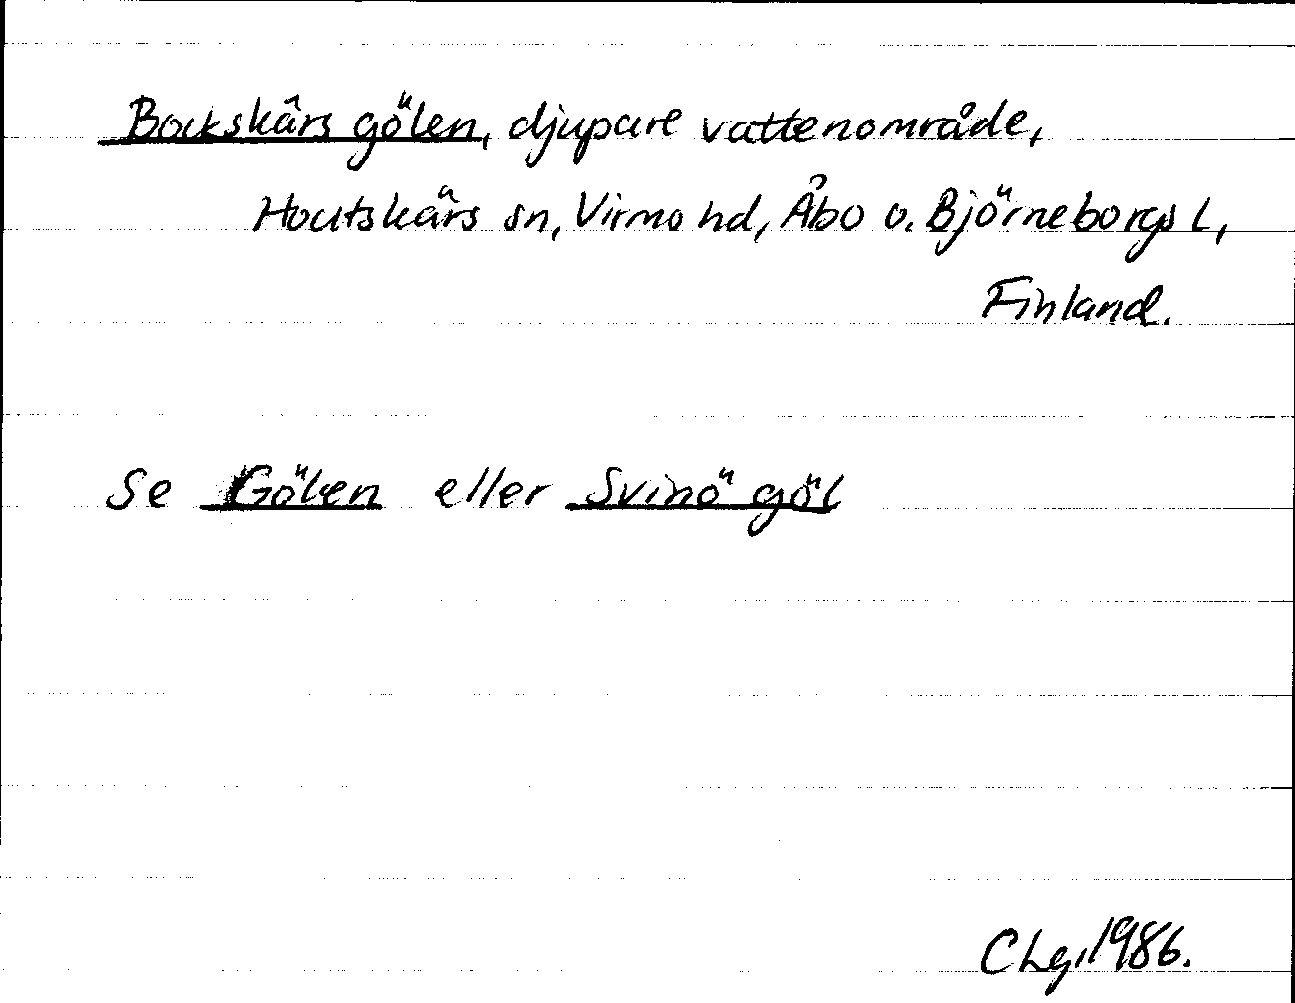 Bockskärs gölen, djupare vattenområde,
Houtskärs sn, Virmo hd, Åbo o. Björneborgs l,
Finland.
Se Gölen eller Svinö göl
CLg, 1986.